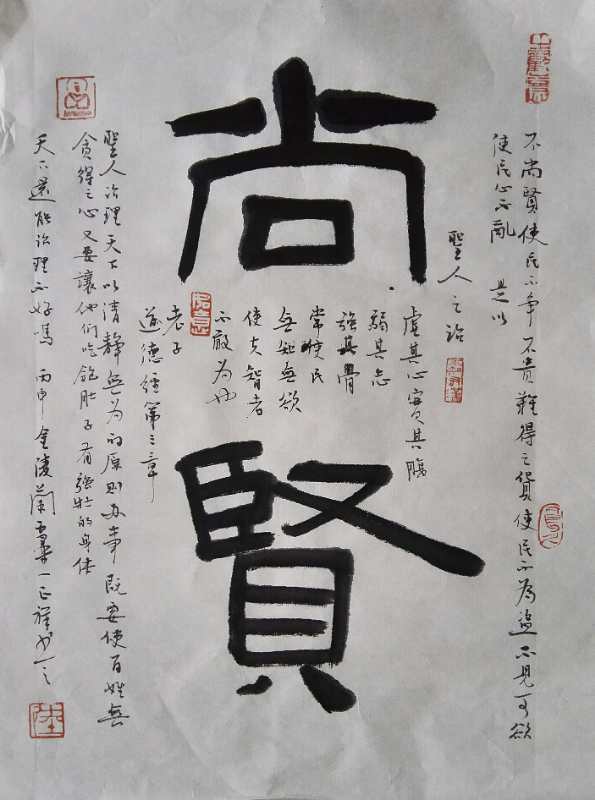 尚賢
不尚賢使民不爭不貴難得之貨使民不為盜不見可欲
使民心不亂 是以
聖人之治
虛其心實其腹
弱其志
強其骨
常使民
無知無欲
使夫智者
不敢為也
老子
道德經第三章
聖人治理天下以清靜無為的原则办事既要使百姓無
貪得之心又要讓他们吃飽肚子有強壯的身体
天下還能治理不好嗎 丙申金陵蘭